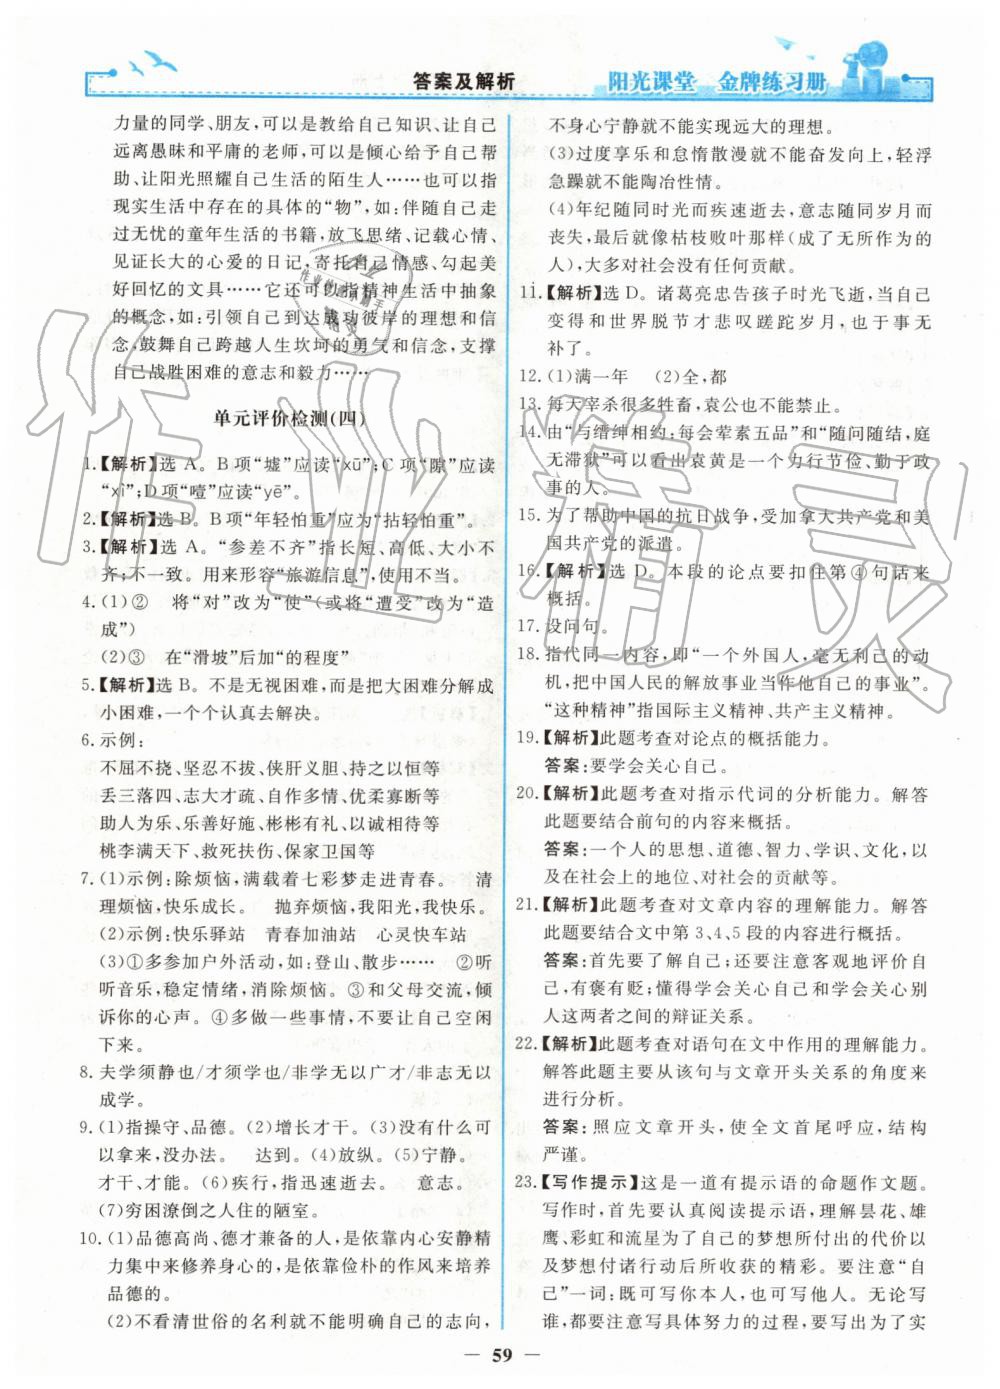 答案及解析
阳光课堂 金牌练习册
力量的同学、朋友,可以是教给自己知识、让自己
远离愚昧和平庸的老师,可以是倾心给予自己帮
助、让阳光照耀自己生活的陌生人……也可以指
现实生活中存在的具体的“物”,如:伴随自己走
过无忧的童年生活的书籍,放飞思绪、记载心情、
见证长大的心爱的日记,寄托自己情感、勾起美
好回忆的文具……它还可以指精神生活中抽象
的概念,如:引领自己到达成功彼岸的理想和信
念,鼓舞自己跨越人生坎坷的勇气和信念,支撑
自己战胜困难的意志和毅力……
单元评价检测(四)
1.【解析】选 A。B项“墟”应读“xū”;C项“隙”应读
“xì”;D项“噎”应读“yē”。
2.【解析】选 B。B项“年轻怕重”应为“拈轻怕重”。
3.【解析】选 A。“参差不齐”指长短、高低、大小不
齐;不一致。用来形容“旅游信息”,使用不当。
4.(1)② 将“对”改为“使”(或将“遭受”改为“造
成”)
(2)③ 在“滑坡”后加“的程度”
5.【解析】选 B。不是无视困难,而是把大困难分解成
小困难,一个个认真去解决。
6.示例:
不屈不挠、坚忍不拔、侠肝义胆、持之以恒等
丢三落四、志大才疏、自作多情、优柔寡断等
助人为乐、乐善好施、彬彬有礼、以诚相待等
桃李满天下、救死扶伤、保家卫国等
7.(1)示例:除烦恼,满载着七彩梦走进青春。 清
理烦恼,快乐成长。 抛弃烦恼,我阳光,我快乐。
(2)示例:快乐驿站 青春加油站 心灵快车站
(3)①多参加户外活动,如:登山、散步…… ②听
听音乐,稳定情绪,消除烦恼。③和父母交流,倾
诉你的心声。④多做一些事情,不要让自己空闲
下来。
8.夫学须静也/才须学也/非学无以广才/非志无以
成学。
9.(1)指操守、品德。(2)增长才干。(3)没有什么可
以拿来,没办法。 达到。(4)放纵。(5)宁静。
才干、才能。(6)疾行,指迅速逝去。 意志。
(7)穷困潦倒之人住的陋室。
10.(1)品德高尚、德才兼备的人,是依靠内心安静精
力集中来修养身心的,是依靠俭朴的作风来培养
品德的。
(2)不看清世俗的名利就不能明确自己的志向,
不身心宁静就不能实现远大的理想。
(3)过度享乐和怠惰散漫就不能奋发向上,轻浮
急躁就不能陶冶性情。
(4)年纪随同时光而疾速逝去,意志随同岁月而
丧失,最后就像枯枝败叶那样(成了无所作为的
人),大多对社会没有任何贡献。
11.【解析】选 D。诸葛亮忠告孩子时光飞逝,当自己
变得和世界脱节才悲叹蹉跎岁月,也于事无
补了。
12.(1)满一年 (2)全,都
13.每天宰杀很多牲畜,袁公也不能禁止。
14.由“与缙绅相约:每会荤素五品”和“随问随结,庭
无滞狱”可以看出袁黄是一个力行节俭、勤于政
事的人。
15.为了帮助中国的抗日战争,受加拿大共产党和美
国共产党的派遣。
16.【解析】选 D。本段的论点要扣住第④句话来
概括。
17.设问句。
18.指代同一内容,即“一个外国人,毫无利己的动
机,把中国人民的解放事业当作他自己的事业”。
“这种精神”指国际主义精神、共产主义精神。
19.【解析】此题考查对论点的概括能力。
答案:要学会关心自己。
20.【解析】此题考查对指示代词的分析能力。解答
此题要结合前句的内容来概括。
答案:一个人的思想、道德、智力、学识、文化,以
及在社会上的地位、对社会的贡献等。
21.【解析】此题考查对文章内容的理解能力。解答
此题要结合文中第 3、4、5 段的内容进行概括。
答案:首先要了解自己;还要注意客观地评价自
己,有褒有贬;懂得学会关心自己和学会关心别
人这两者之间的辩证关系。
22.【解析】此题考查对语句在文中作用的理解能力。
解答此题主要从该句与文章开头关系的角度进
行分析。
答案:照应文章开头,使全文首尾呼应,结构
严谨。
23.【写作提示】这是一道有提示语的命题作文题。
写作时,首先要认真阅读提示语,理解昙花、雄
鹰、彩虹和流星为了自己的梦想所付出的代价以
及梦想付诸行动后所收获的精彩。要注意“自
己”一词:既可写你本人,也可写他人。无论写
谁,都要注意写具体努力的过程,要写出为了实
59
作业精灵